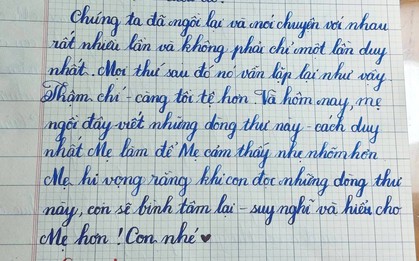 Chúng ta đã ngồi lại và nói chuyện với nhau
rất nhiều lần và không phải chỉ một lần duy
nhất. Mọi thứ sau đó nó vẫn lặp lại như vậy
Thậm chí - càng tồi tệ hơn. Và hôm nay, mẹ
ngồi đây viết những dòng thư này - cách duy
nhất Mẹ làm để Mẹ cảm thấy nhẹ nhõm hơn
Mẹ hi vọng rằng khi con đọc những dòng thư
này, con sẽ bình tâm lại - suy nghĩ và hiểu cho
Mẹ hơn! Con nhé ♥